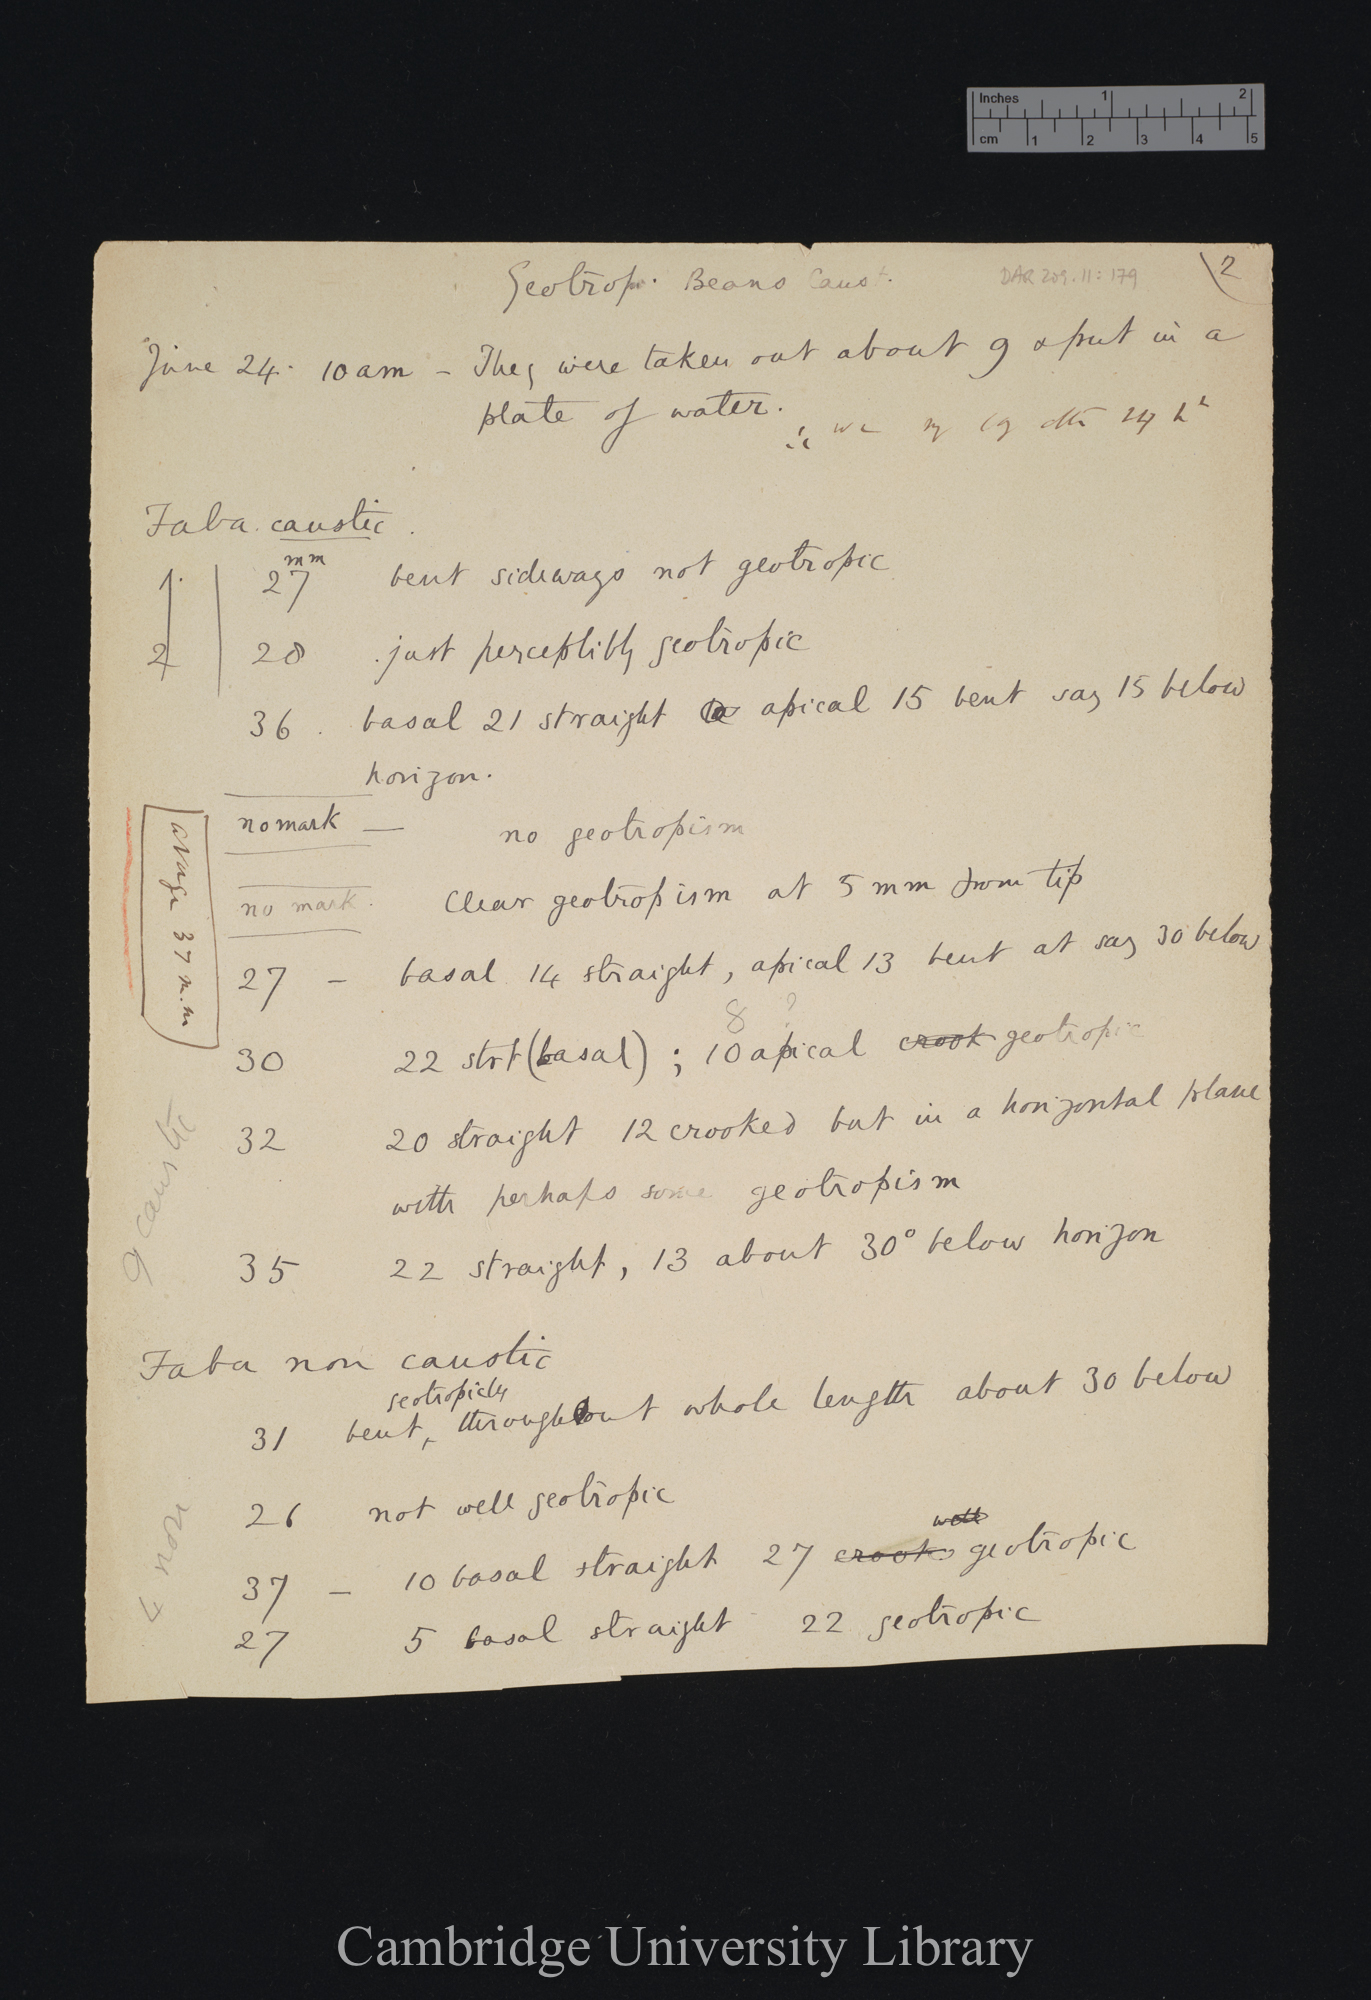 Inches 1 2
cm 1 2 3 4 5
Geotrop. Beans Caust.
DAR 209.11:179
2
June 24. 10 am – They were taken out about 9 & put in a
plate of water.
24 h
Faba. caustic.
1. 27 mm bent sideways not geotropic
2 28 just perceptibly geotropic
36. basal 21 straight apical 15 bent say 15 below
horizon.
no mark — no geotropism
no mark. Clear geotropism at 5 mm from tip
27 – basal 14 straight, apical 13 bent at say 30 below
8 ?
30 22 strt (basal) ; 10 apical crook geotropic
32 20 straight 12 crooked but in a horizontal plane
with perhaps some geotropism
35 22 straight, 13 about 30° below horizon
average 37 m.m
9 caustic
Faba non caustic
geotropicly
31 bent, throughout whole length about 30 below
26 not well geotropic
well
37 – 10 basal straight 27 crook geotropic
27 5 basal straight 22 geotropic
4 non
Cambridge University Library